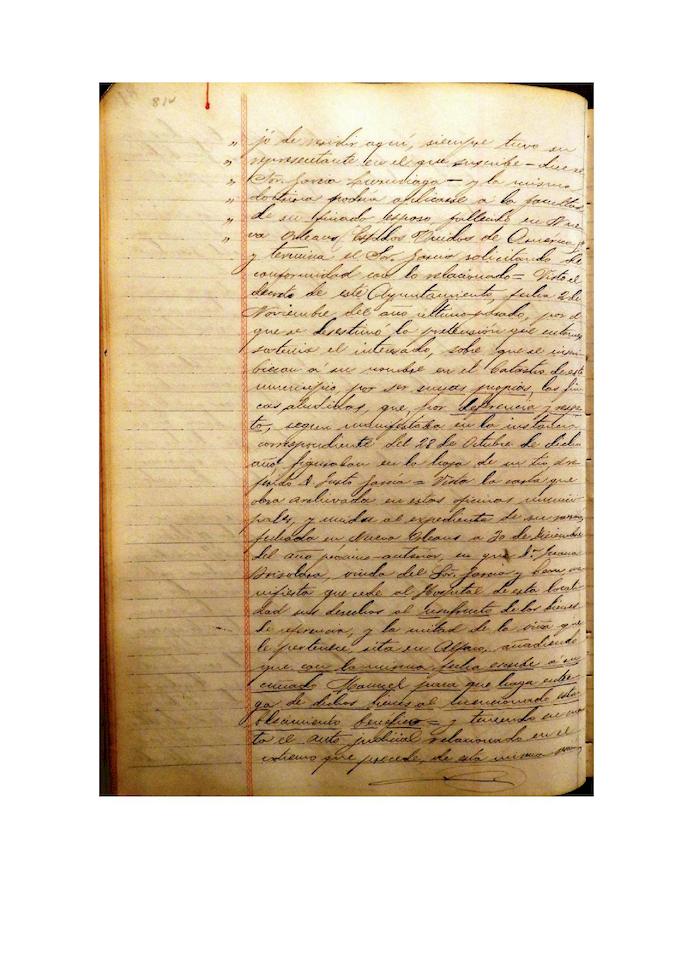 814
" jó de residir aquí, siempre tuvo su
" representante en el que suscribe = dice el
" Sor. Garcia = y la misma
" doctrina podria aplicarse a la
" de su finado esposo, fallecido en Nue
" va Orleans, Estados Unidos de America =
y termina el Sor. Garcia solicitando de
conformidad con lo relacionado = Visto el
decreto de este Ayuntamiento, fecha 2 de
Noviembre del año ultimo pasado, por el
que se desestimó la pretensión que entonces
sostenia el interesado, sobre que se inscri
bieran á su nombre en el Catastro de este
municipio, por ser suyas propias, las fin
cas aludidas, que, por deferencia y respe
to, segun manifestaba en la instancia
correspondiente del 28 de Octubre de dicho
año figuraban en la hoja de su tio
D. Justo Garcia = Vista la carta que
obra archivada en estas oficinas munici
pales, y unida al expediente de su razon,
fechada en Nueva Orleans a 30 de Diciembre
del año proximo anterior, en que Dª Juana
Brisolara, viuda del Sor. Garcia y ma
nifiesta que cede al Hospital de esta locali
dad sus derechos al usufructo de los bienes
de referencia, y la mitad de la viña que
le pertenece, sita en Alfaro, añadiendo
que con la misma fecha escribe a su
cuñado Manuel para que haga entre
ga de dichos bienes al mencionado esta
blecimiento benefico = y teniendo en cuen
ta el auto judicial relacionado en el
extremo que precede, de esta misma